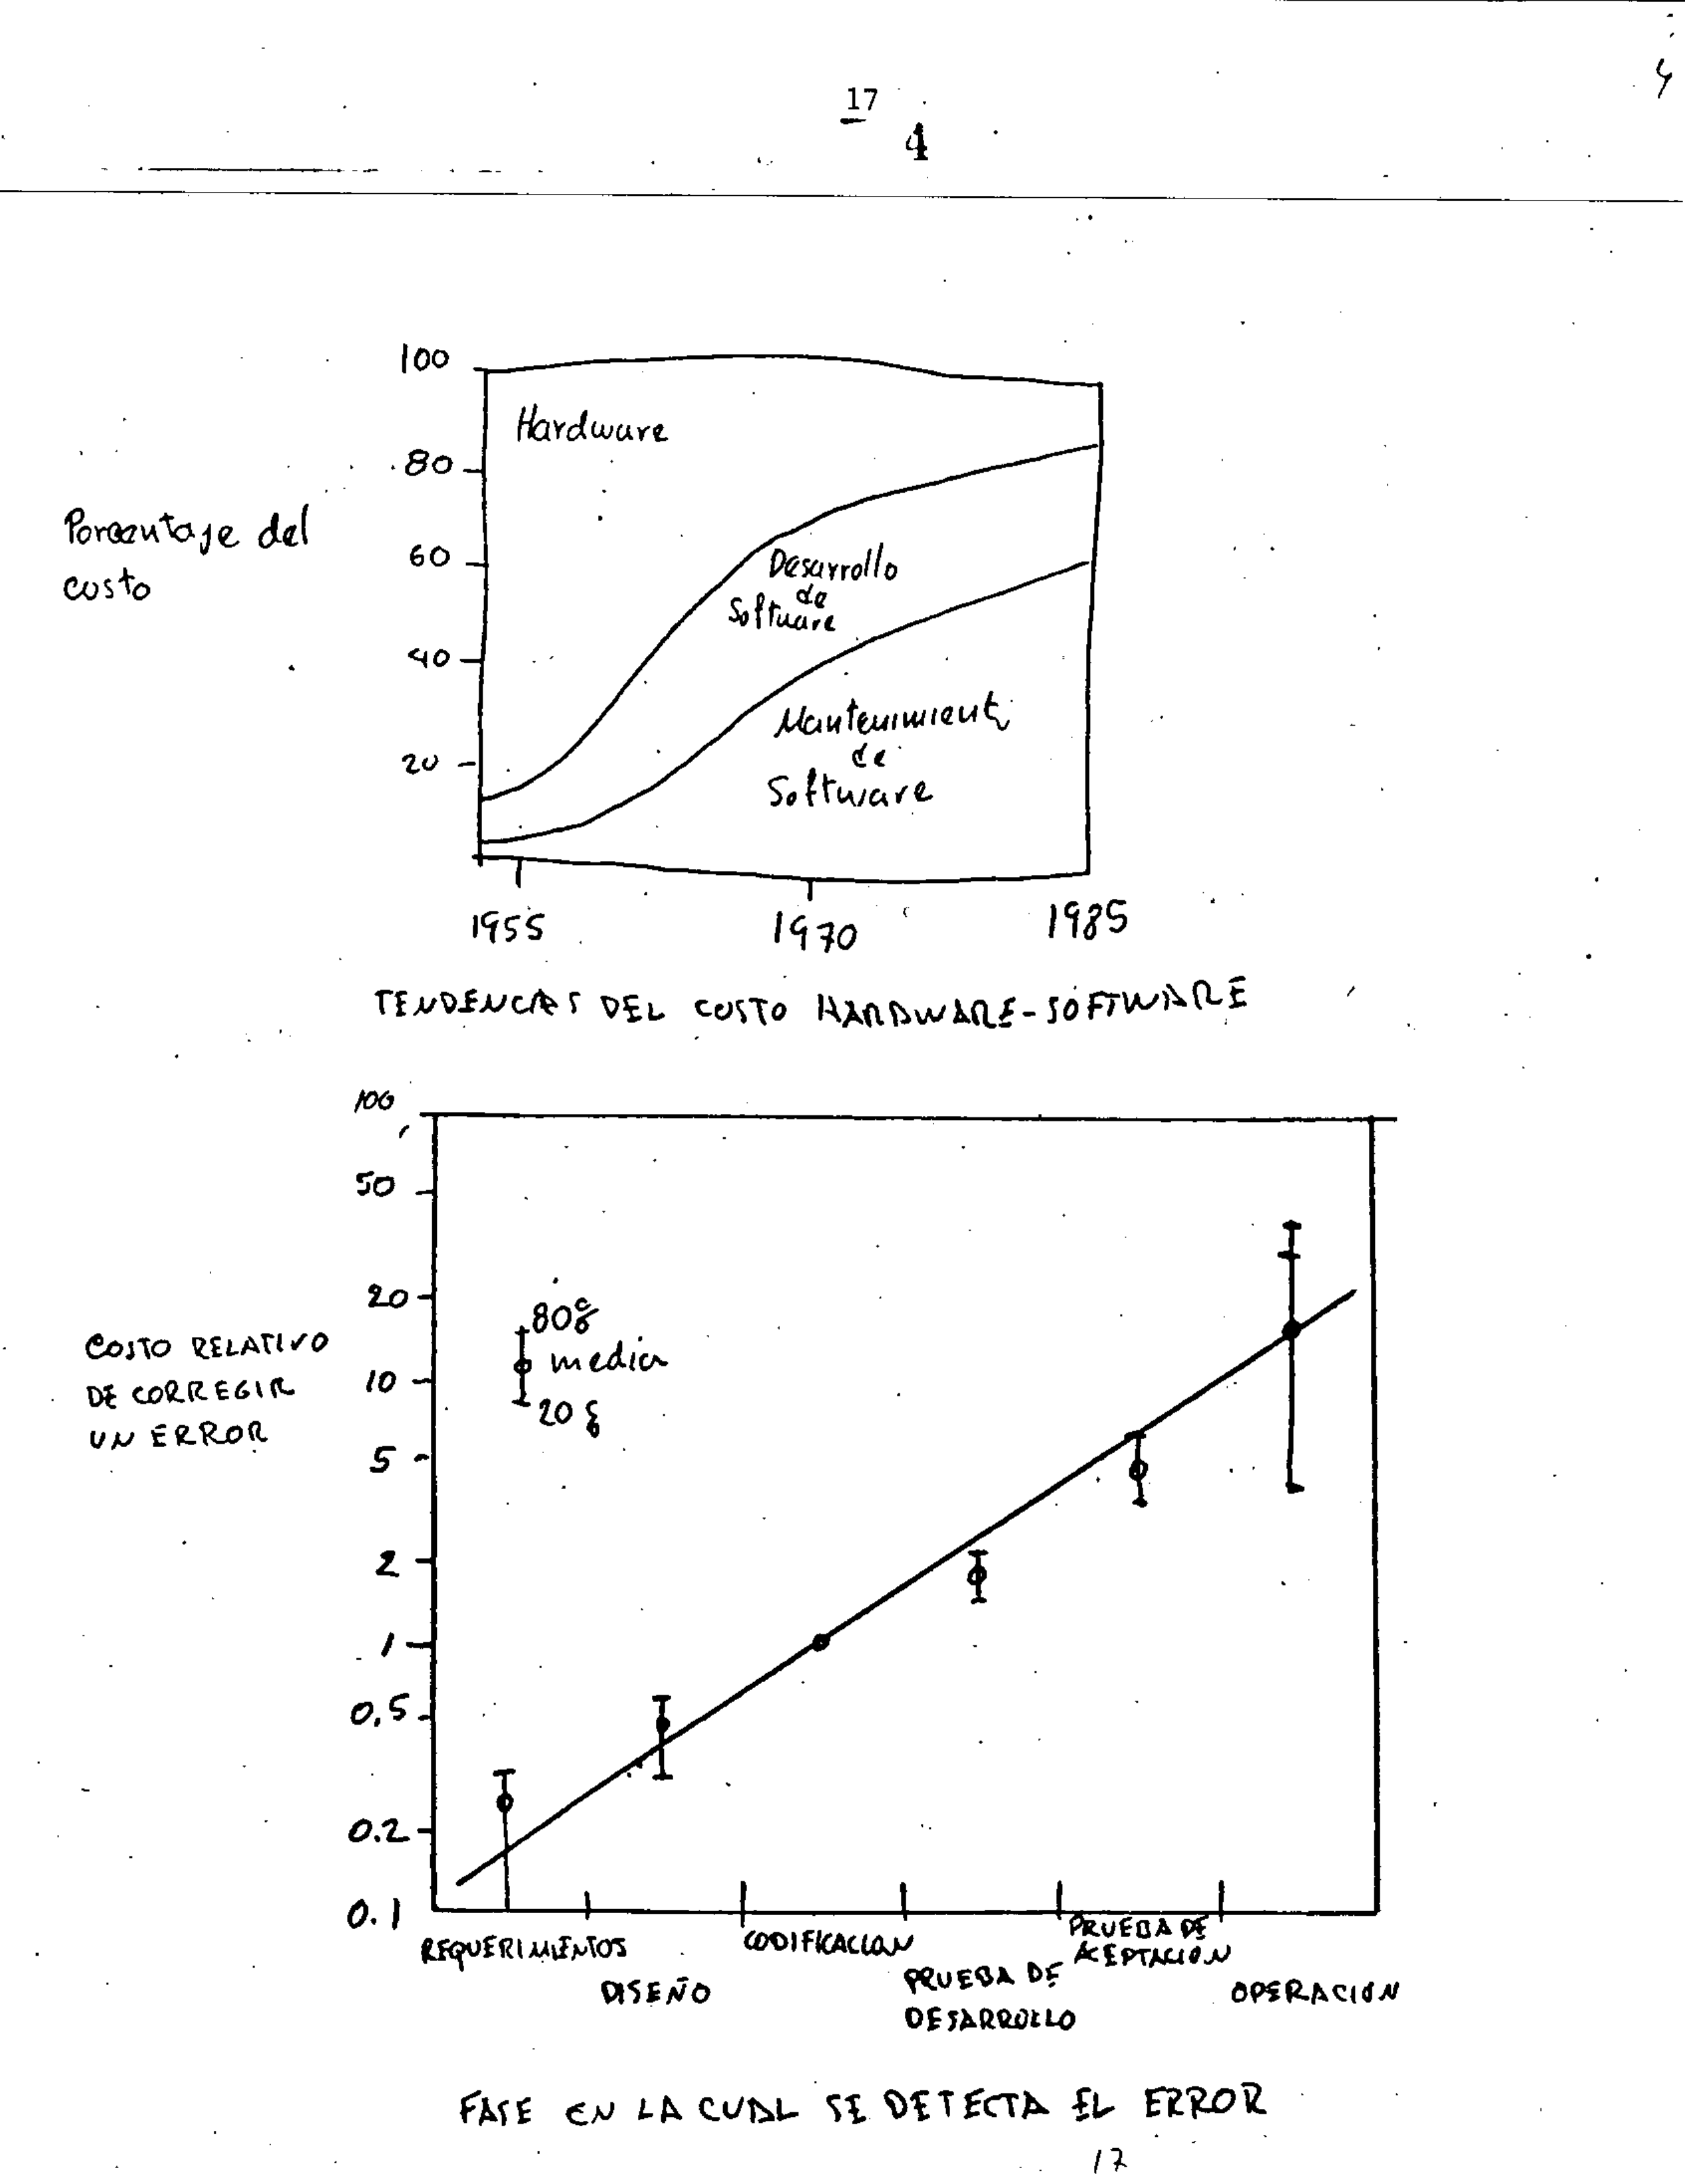 4
17
4
100
Hardware
80
Porcentaje del
costo
60
Desarrollo
de
Software
40
Mantenimiento
de
Software
20
1955
1970
1985
TENDENCIAS DEL COSTO HARDWARE-SOFTWARE
100
50
20
80%
COSTO RELATIVO
DE CORREGIR
UN ERROR
media
10
20%
5
2
1
0.5
0.2
0.1
REQUERIMIENTOS
DISEÑO
CODIFICACION
PRUEBA DE
DESARROLLO
PRUEBA DE
ACEPTACION
OPERACION
FASE EN LA CUAL SE DETECTA EL ERROR
17